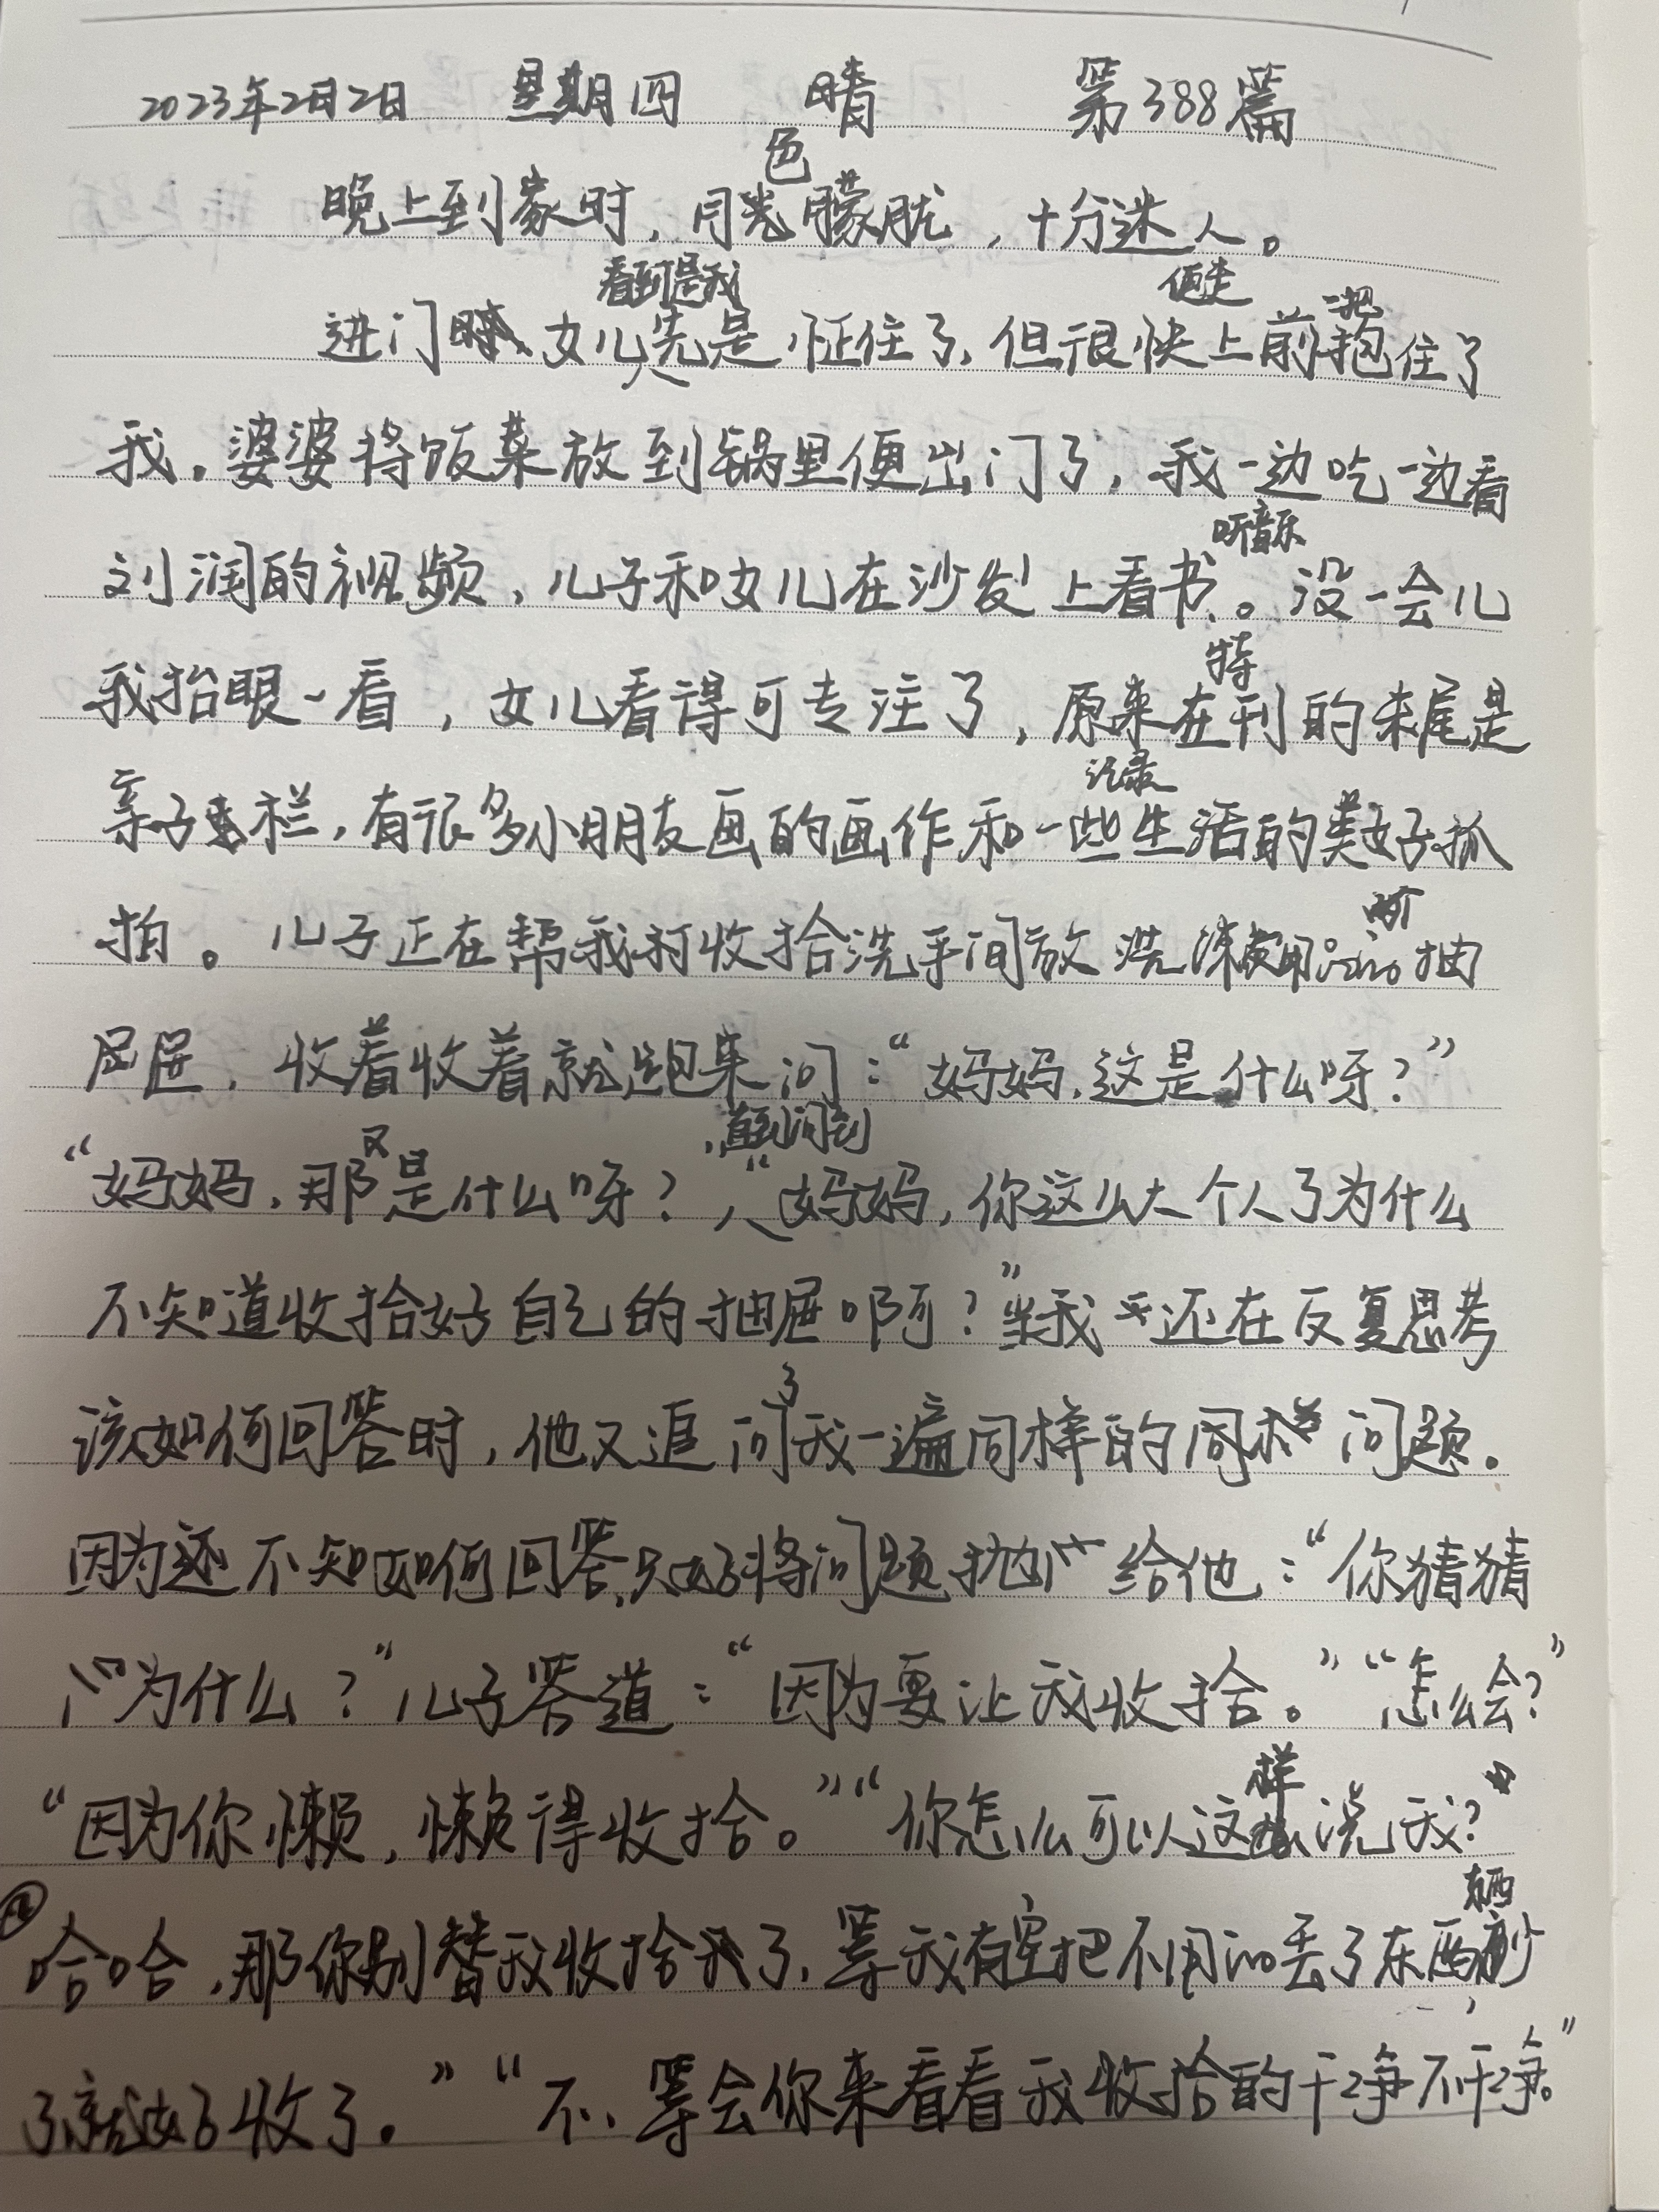 2023年2月2日 星期四 晴 第388篇
色
晚上到家时，月光朦胧，十分迷人。
看到是我 便走 一把
进门时，女儿先是怔住了，但很快上前抱住了
我。婆婆将饭菜放到锅里便出门了，我一边吃一边看
听音乐
刘润的视频，儿子和女儿在沙发上看书、。没一会儿
特
我抬眼一看，女儿看得可专注了，原来在刊的末尾是
记录
亲子栏，有很多小朋友画的画作和一些生活的美好抓
拍。儿子正在帮我收拾洗手间放洗漱用品的抽
屉屉，收着收着就跑来问：“妈妈，这是什么呀？”
又 ，直到问到
“妈妈，那是什么呀？”“妈妈，你这么大个人了为什么
不知道收拾好自己的抽屉啊？”当我还在反复思考
了
该如何回答时，他又追问我一遍同样的同样问题。
因为还不知如何回答，只好将问题抛给他：“你猜猜
为什么？”儿子答道：“因为要让我收拾。”“怎么会？”
“因为你懒，懒得收拾。”“你怎么可以这样说我？”
东西
哈哈，那你别替我收拾了，等我有空把不用的丢了东西少
了就好收了。”“不，等会你来看看我收拾的干净不干净。”